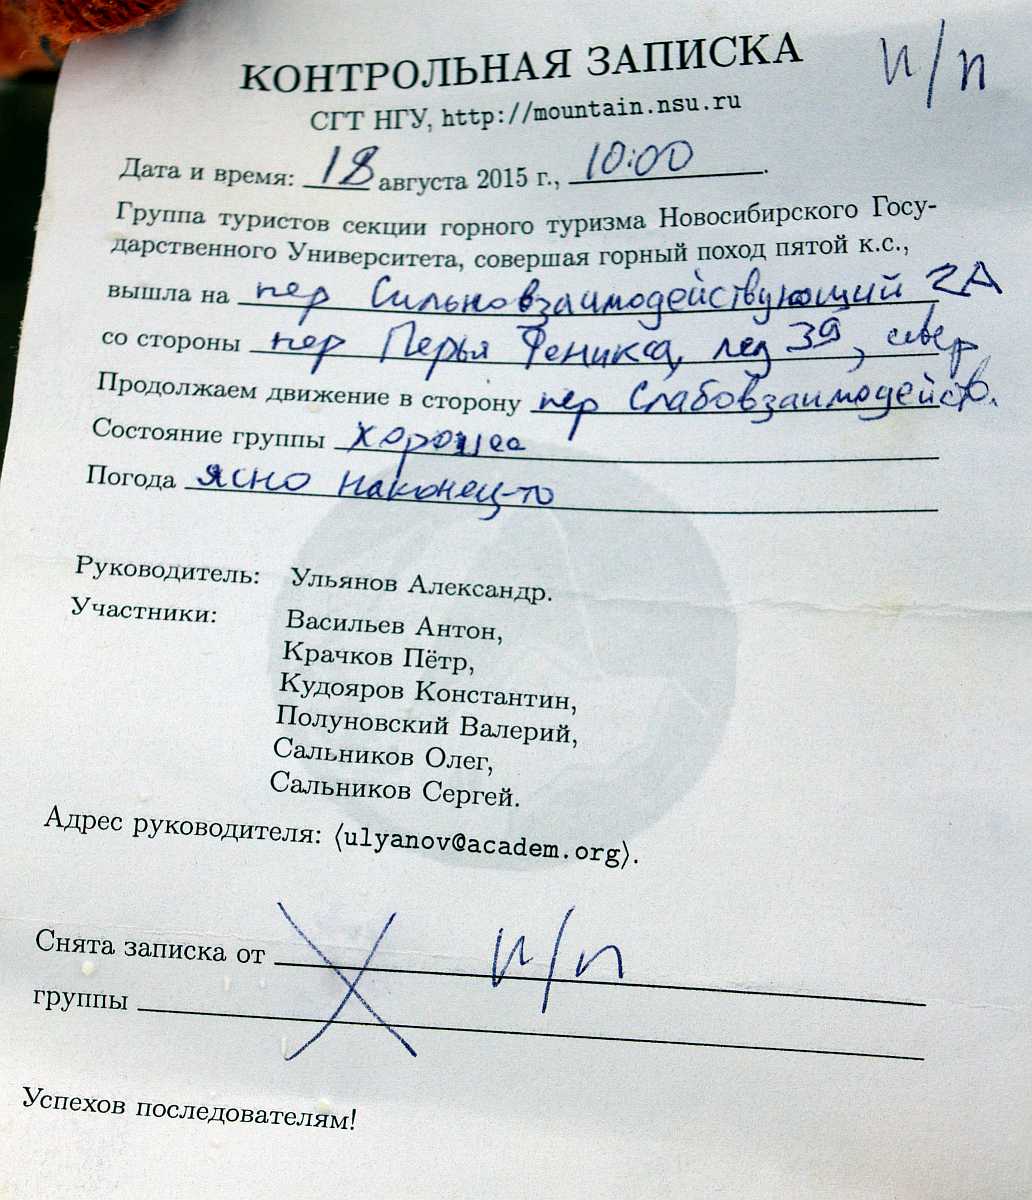 КОНТРОЛЬНАЯ ЗАПИСКА
п/п
СГТ НГУ, http://mountain.nsu.ru
Дата и время: 18 августа 2015 г., 10:00.
Группа туристов секции горного туризма Новосибирского Госу-
дарственного Университета, совершая горный поход пятой к.с.,
вышла на пер Сильновзаимодействующий 2А
со стороны пер Перья Феникса, лед 39, север
Продолжаем движение в сторону пер Слабовзаимодейств.
Состояние группы хорошее
Погода ясно наконец-то
Руководитель: Ульянов Александр.
Участники: Васильев Антон,
Крачков Пётр,
Кудояров Константин,
Полуновский Валерий,
Сальников Олег,
Сальников Сергей.
Адрес руководителя: ⟨ulyanov@academ.org⟩.
Снята записка от п/п
группы
Успехов последователям!